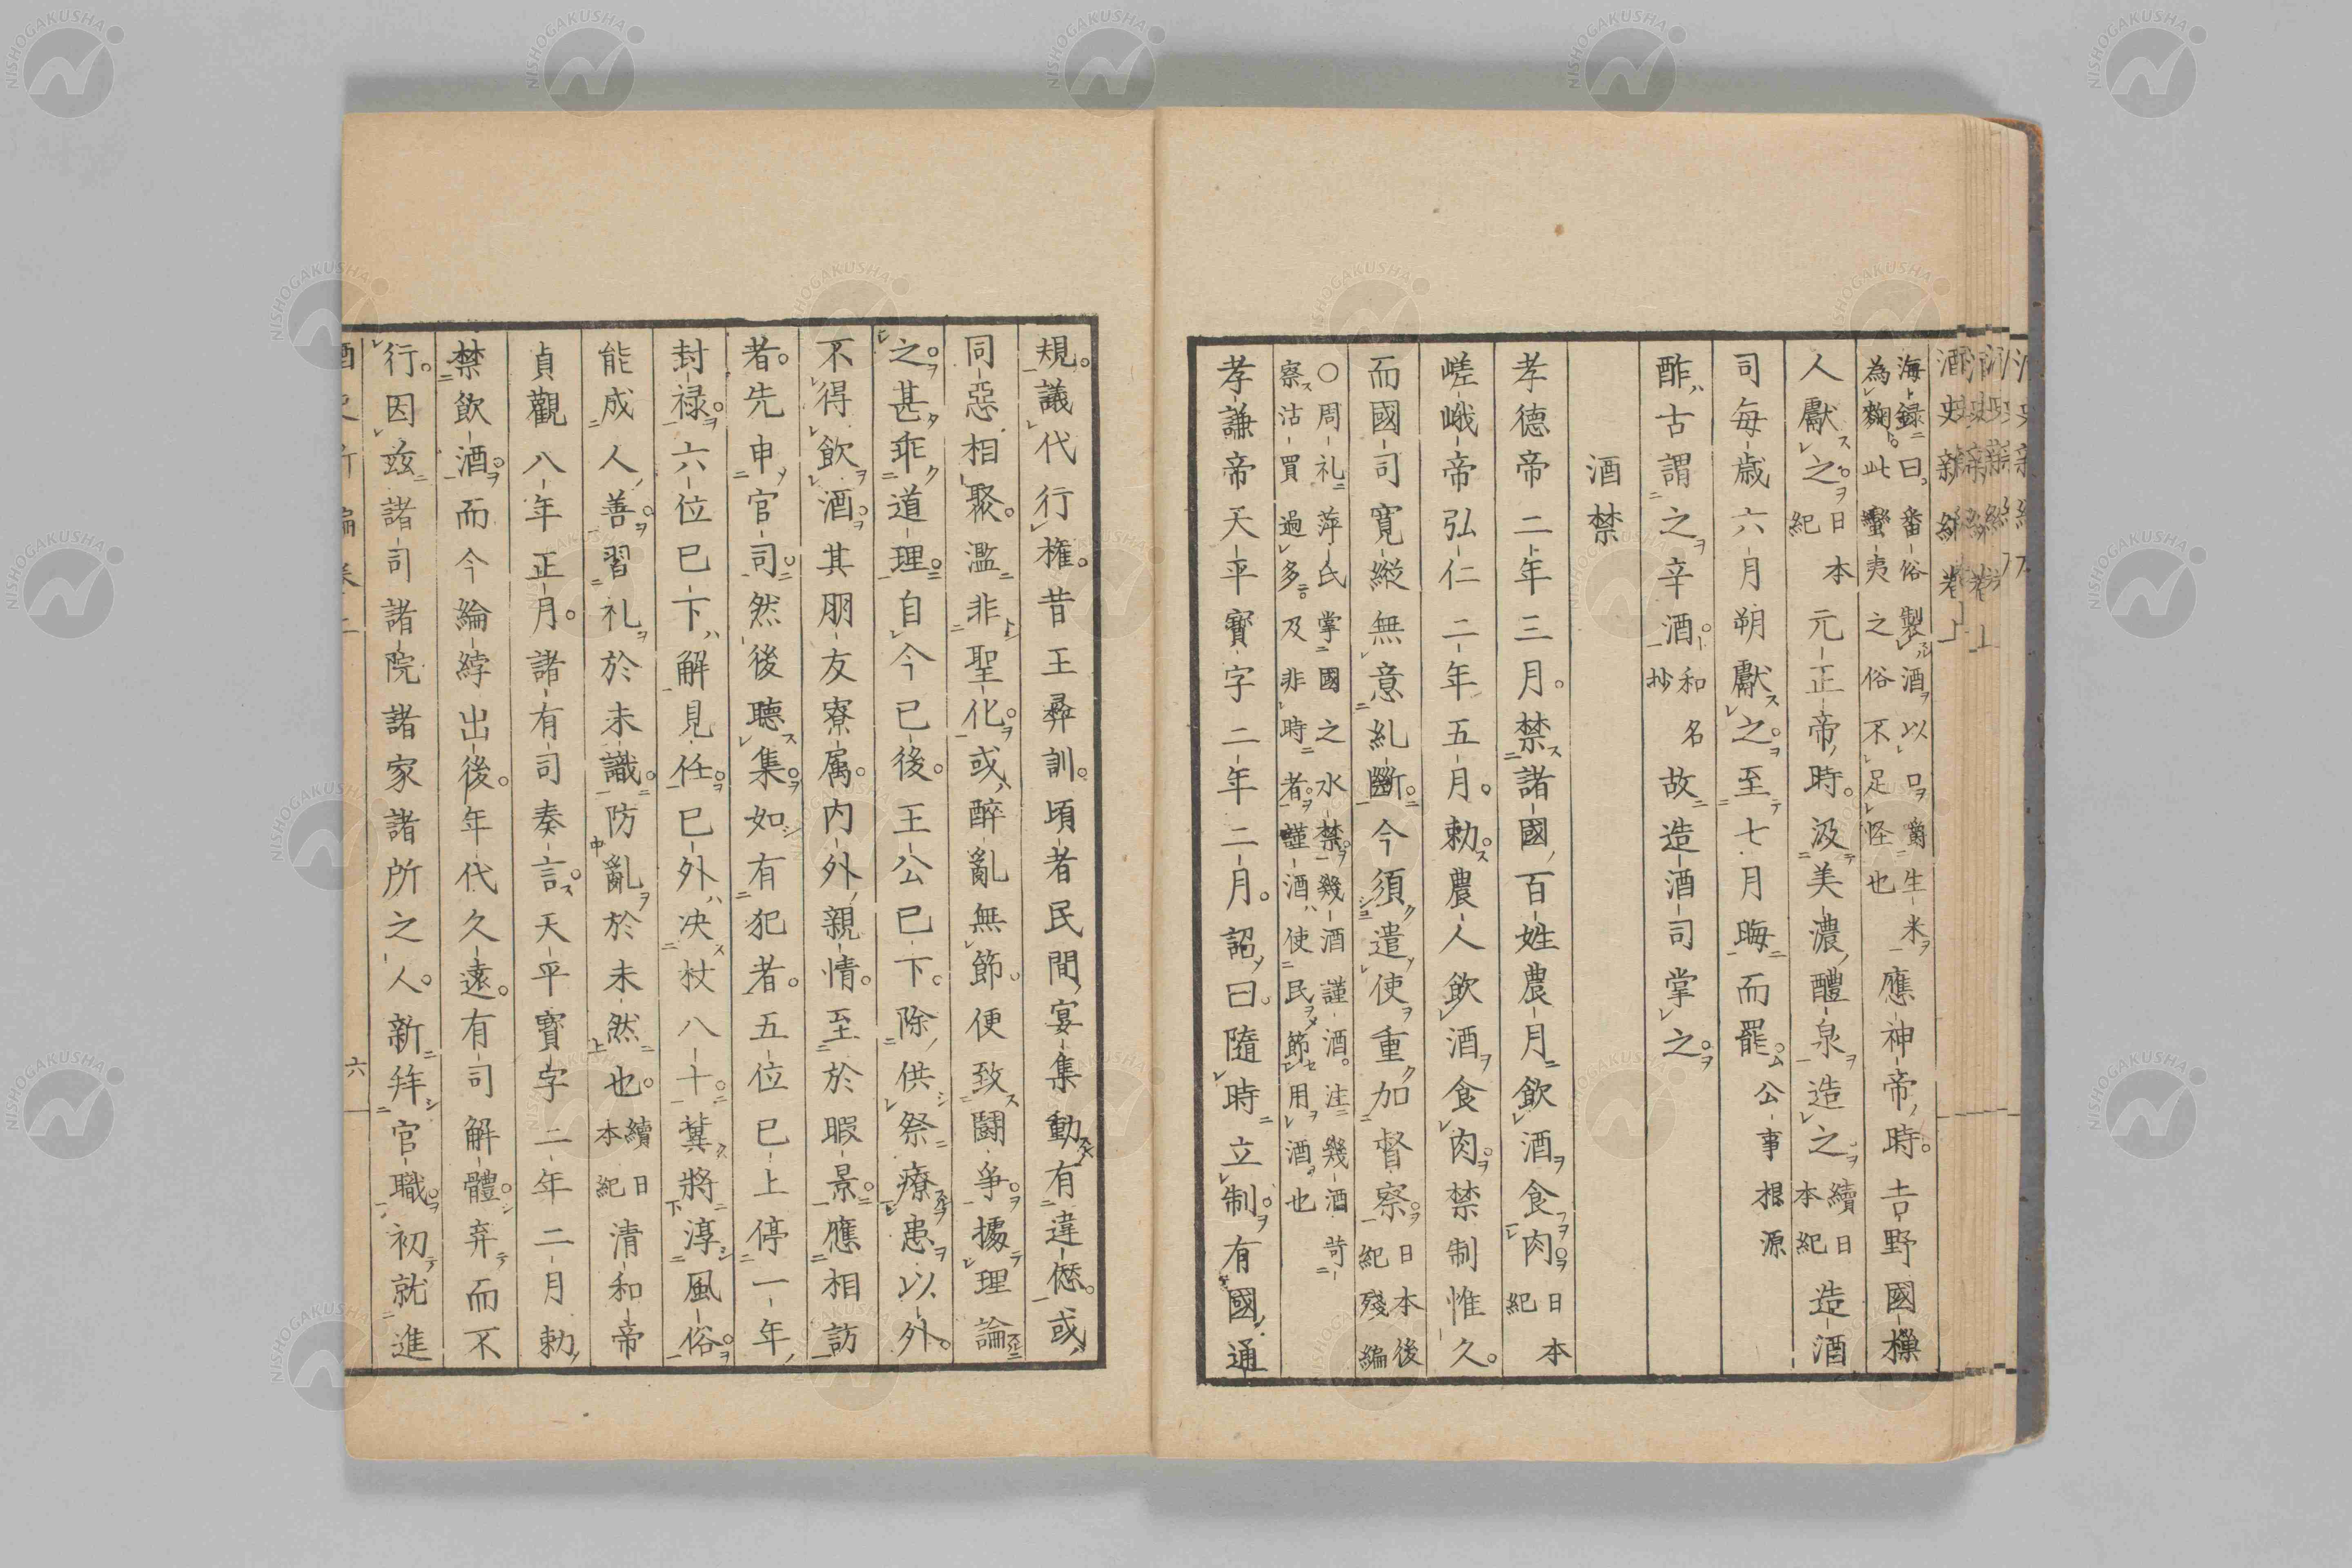 海録曰番俗製酒以口嚼生米
為麹此蠻夷之俗不足怪也
應神帝時吉野國樔
人獻之
日本
紀
元正帝時汲美濃醴泉造之
續日
本紀
造酒
司毎歳六月朔獻之至七月晦而罷
公事根源
酢古謂之辛酒
和名
抄
故造酒司掌之
酒禁
孝德帝二年三月禁諸國百姓農月飲酒食肉
日本
紀
嵯峨帝弘仁二年五月勅農人飲酒食肉禁制惟久
而國司寛縱無意糺斷今須遣使重加督察
日本後
紀殘編
○周礼萍氏掌國之水禁幾酒謹酒注幾酒苛
察沽買過多及非時者謹酒使民節用酒也
孝謙帝天平寶字二年二月詔曰隨時立制有國通
規議代行權昔王彝訓頃者民間宴集動有違愆或
同惡相聚濫非聖化或醉亂無節便致鬪爭據理論
之甚乖道理自今已後王公已下除供祭療患以外
不得飲酒其朋友寮属内外親情至於暇景應相訪
者先申官司然後聽集如有犯者五位已上停一年
封禄六位已下解見任已外决杖八十冀將淳風俗
能成人善習礼於未識防亂於未然也
續日
本紀
清和帝
貞觀八年正月諸有司奏言天平寶字二年二月勅
禁飲酒而今綸綍出後年代久遠有司解體弃而不
行因玆諸司諸院諸家諸所之人新拜官職初就進
六
酒史新編卷上